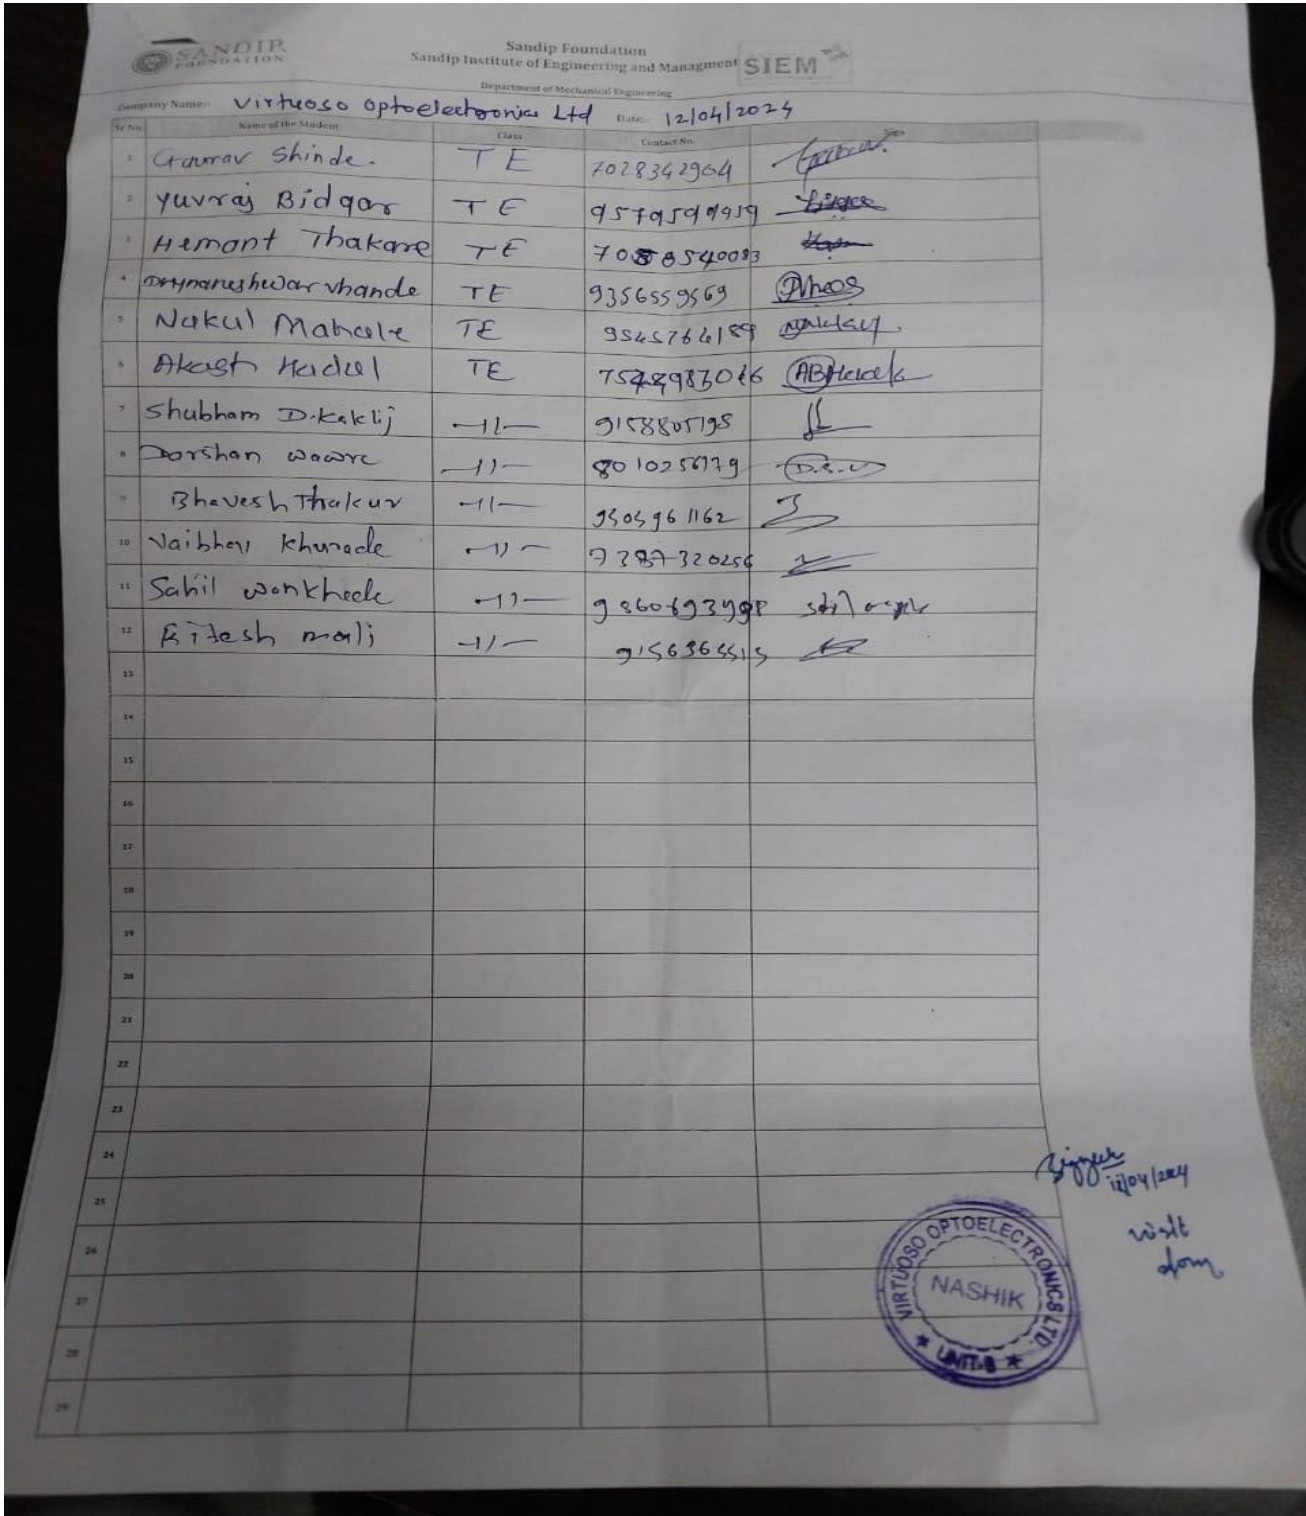 SANDIP FOUNDATION
Sandip Foundation
Sandip Institute of Engineering and Managment
SIEM
Department of Mechanical Engineering
Company Name:- Virtuoso optoelectronics Ltd Date:- 12/04/2024
Sr No. Name of the Student Class Contact No. Sign
1 Gaurav Shinde. TE 7028342964
2 Yuvraj Bidgar TE
3 Hemant Thakare TE
4 Dnymaneshwar vhande TE 9356559569
5 Nakul Mahale TE 9545764189
6 Akash Hadul TE
7 Shubham D. Kaklij -11- 9158805195
8 Darshan waware -11-
9 Bhavesh Thakur -11- 9505961162
10 Vaibhav Khurade -11- 7387320256
11 Sahil wankhede -11-
12 Ritesh mali -11-
13
14
15
16
17
18
19
20
21
22
23
24
25
26
27
28
29
12/04/2024
visit
VIRTUOSO OPTOELECTRONICS LTD.
NASHIK
★ UNIT-8 ★